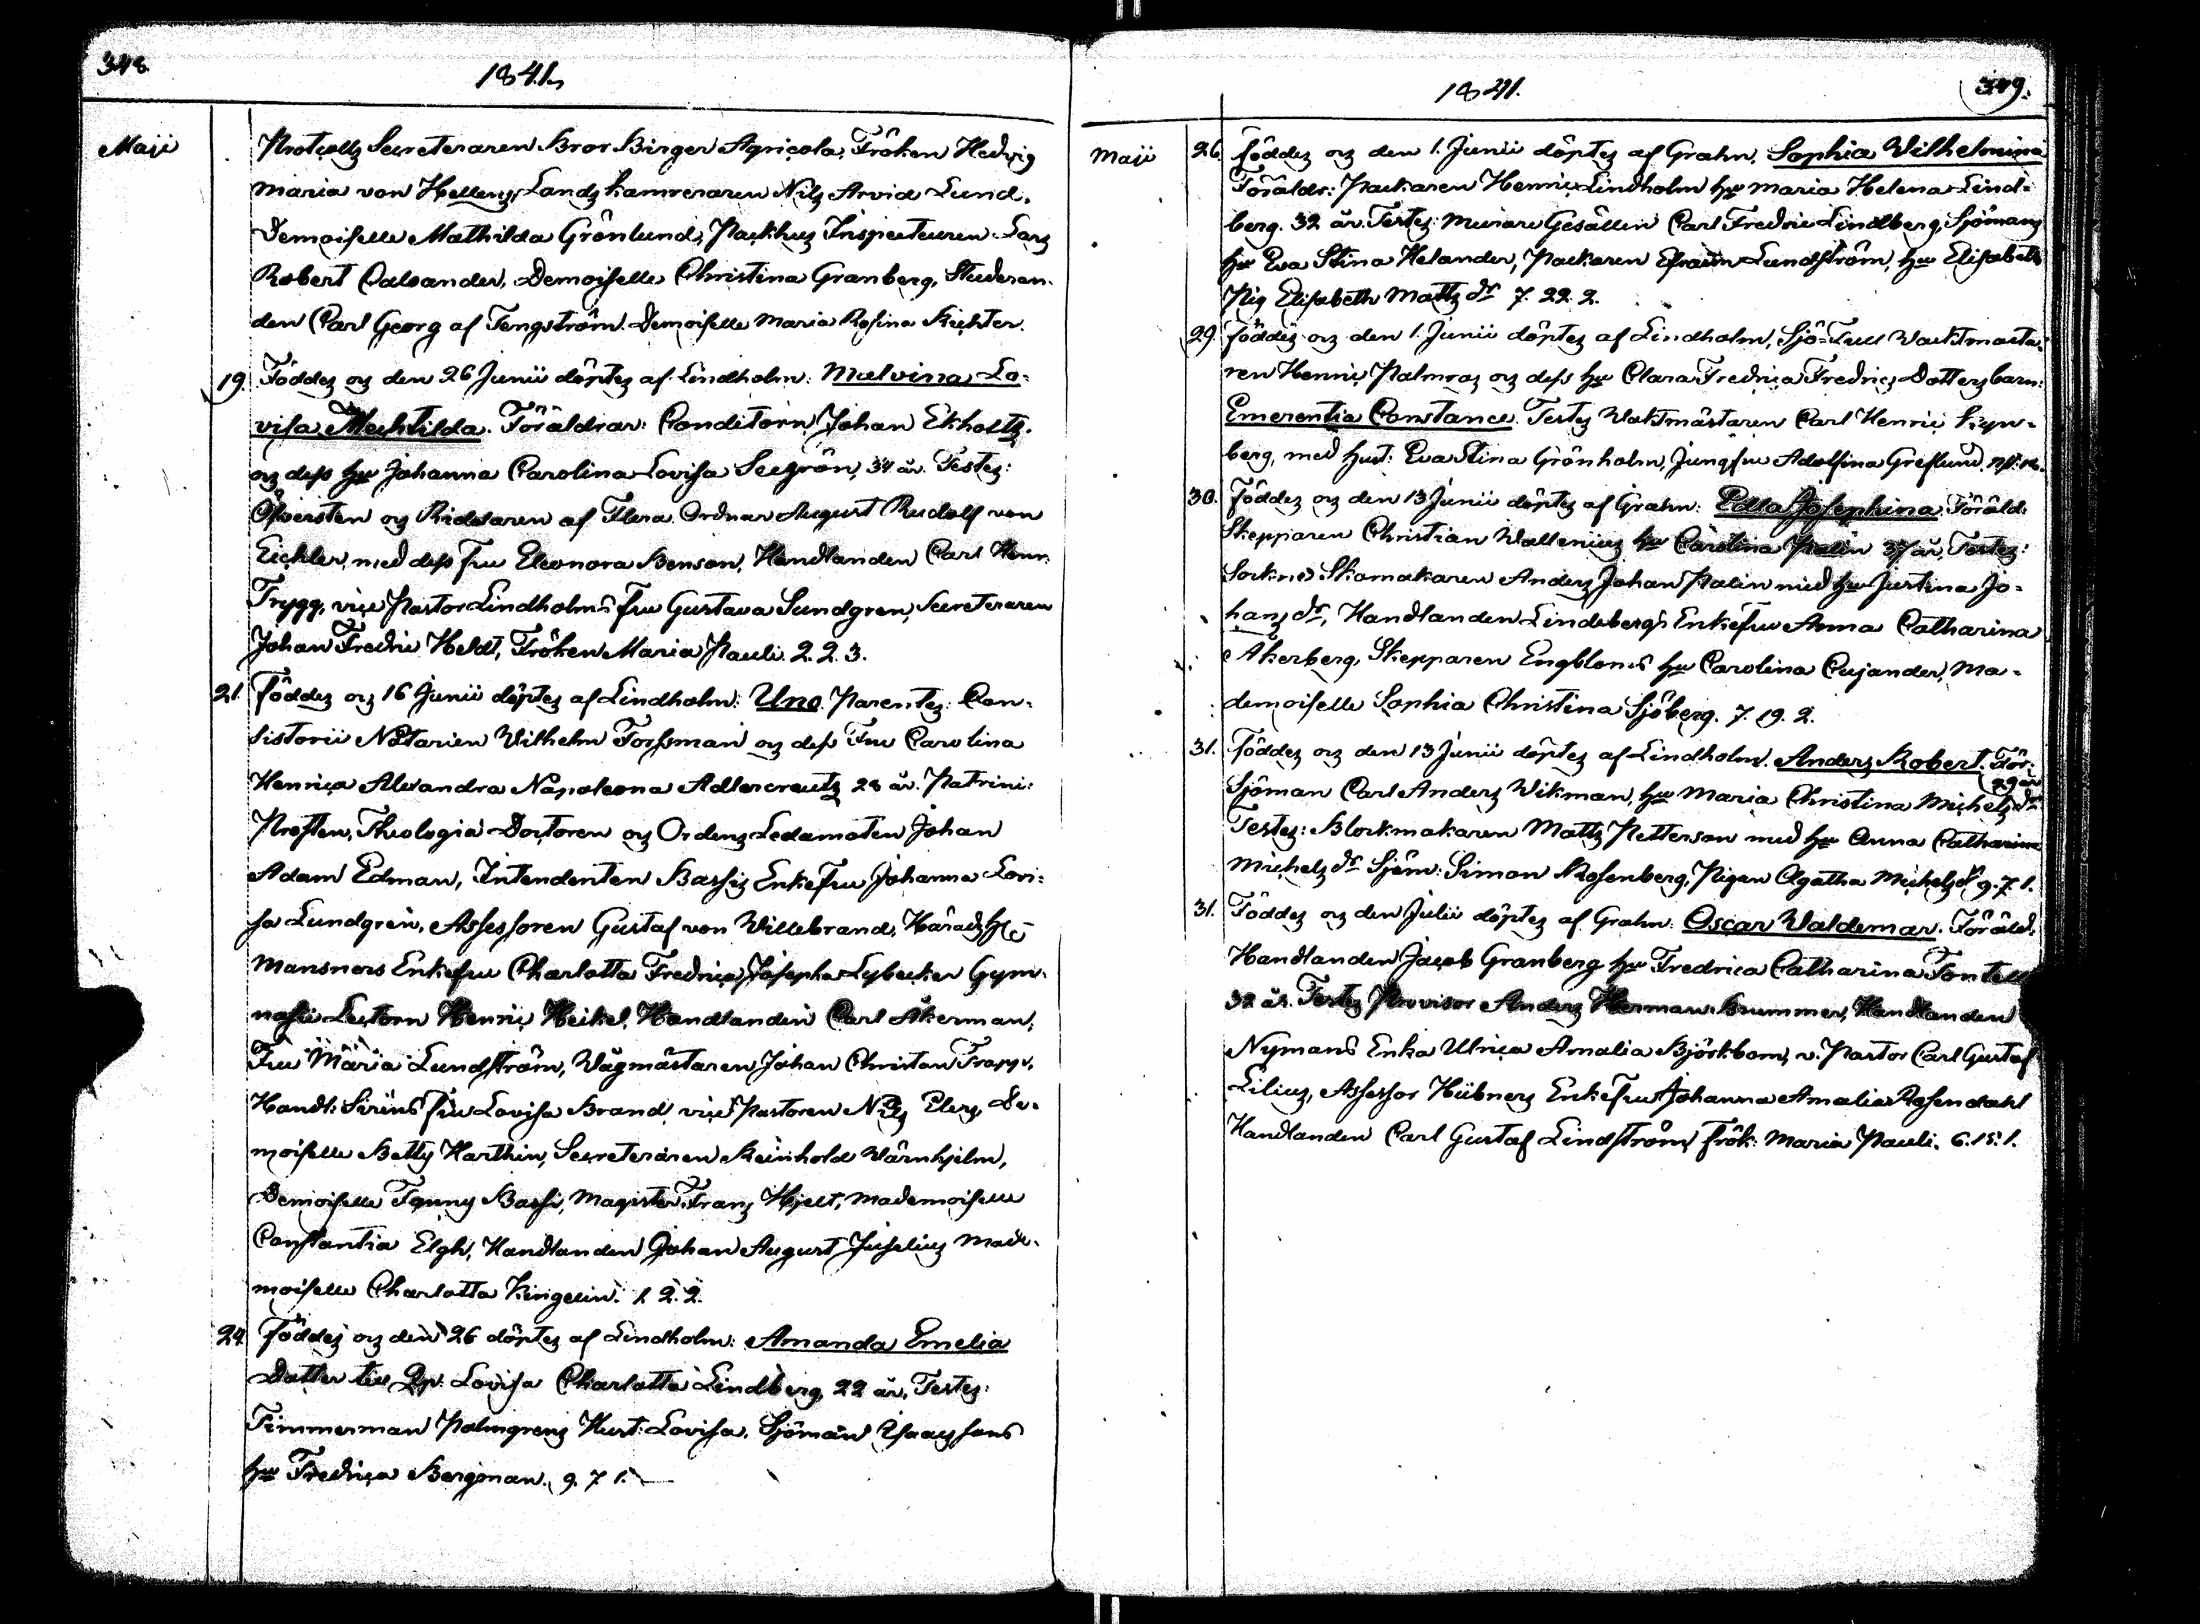 348.
1841.
Maji
Protcolls Secreteraren Bror Birger Agricola, Fröken Hedvig
Maria von Hellens, Lands kamreraren Nils Arvid Lund.
Demoiselle Mathilda Grönlund, Packhus Inspecteuren Lars
Robert Caloander, Demoiselle Christina Granberg, Studeran-
den Carl Georg af Tengström. Demoiselle Maria Rosina Richter.
19. Föddes og den 26 Junii döptes af Lindholm: Malvina Lo-
visa Mechtilda. Föräldrar: Conditorn Johan Ekholtz.
og dess hu Johanna Carolina Lovisa Seegrön, 34 år. Testes:
Öfversten og Riddaren af Flera Ordnar August Rudolf von
Eichler, med dess fru Eleonora Benson, Handlanden Carl Henr.
Trygg, vice Pastor Lindholms fru Gustava Sundgren, Secreteraren
Johan Fredric Heldt, Fröken Maria Pauli. 2. 2. 3.
21. Föddes og 16 Junii döptes af Lindholm: Uno. Parentes: Con-
sistorii Notarien Wilhelm Forssman og dess Fru Carolina
Henrica Alexandra Napoleona Adlercreutz 28 år. Patrini:
Prosten, Theologiä Doctoren og Ordens Ledamoten Johan
Adam Edman, Intendenten Bassis Enkefru Johanna Lovi-
sa Lundgrein, Assessoren Gustaf von Willebrand, Härads
Mansners Enkefru Charlotta Fredrica Josepha Lybecker Gym-
nasii Lectorn Henric Heikel, Handlanden Carl Åkerman,
Fru Maria Lundström, Vågmästaren Johan Christian Trapp,
Handl: Siréns fru Lovisa Brand, vice Pastoren Nils Elers, De-
moiselle Betty Harthin, Secreteraren Reinhold Wärnhjelm,
Demoiselle Fanny Bassi, Magister Frans Hjelt, Mademoiselle
Constantia Elgh, Handlanden Johan August Juselius Made-
moiselle Charlotta Kingelin. 1. 2. 2.
24 Föddes og den 26 döptes af Lindholm: Amanda Emelia
Dotter till Qp. Lovisa Charlotta Lindberg, 22 år. Testes:
Timmerman Palmgrens Hust. Lovisa. Sjöman Isacssons
hu Fredrica Bergman. 9. 7 1.
1841.
349.
Maji
26. Föddes og den 1. Junii döptes af Grahn, Sophia Wilhelmina
Förälds: Packaren Henric Lindholm hu Maria Helena Lind-
berg. 32 år. Testes: Murare Gesällen Carl Fredric Lindberg, Sjömans
hu Eva Stina Helander, Packaren Efraim Lundström, hu Elisabeth
Pig Elisabeth Matts dr 7. 22. 2.
29. Föddes og den 1. Junii döptes af Lindholm, Sjö-Tull Vacktmästa-
ren Henric Palmros og dess hu Clara Fredrica Fredrics Dotters barn:
Emerentia Constance. Testes Waktmästaren Carl Henric
berg, med hust: Eva Stina Grönholm, Jungfru Adolfina Greflund.
30. Föddes og den 13 Junii döptes af Grahn: Edla Josephina. Föräld.
Skepparen Christian Wallenius hu Carolina Palin 37 år. Testes:
Sockne Skomakaren Anders Johan Palin med hu Justina Jo-
hans dr, Handlanden Lindebergs Enkefru Anna Catharina
Åkerberg, Skepparen Engbloms hu Carolina Cujander, Ma-
demoiselle Sophia Christina Sjöberg. 7. 19. 2.
31. Föddes og den 13 Junii döptes af Lindholm. Anders Robert. För:
Sjöman Carl Anders Wikman, hu Maria Christina Michels dr 29 år
Testes: Blockmakaren Matts Petterson med hu Anna Catharina
Michels dr Sjöm: Simon Rosenberg, Pigan Agatha Michels dr 9. 7. 1.
31. Föddes og den Julii döptes af Grahn. Oscar Valdemar. Föräld.
Handlanden Jacob Granberg hu Fredrica Catharina Tomtell
32 år. Testes Provisor Anders Herman Brummer, Handlanden
Nymans Enka Ulrica Amalia Björkbom, v. Pastor Carl Gustaf
Lilius, Assessor Hübners Enkefru Johanna Amalia Rosendahl
Handlanden Carl Gustaf Lindström, frök: Maria Pauli. 6. 15. 1.